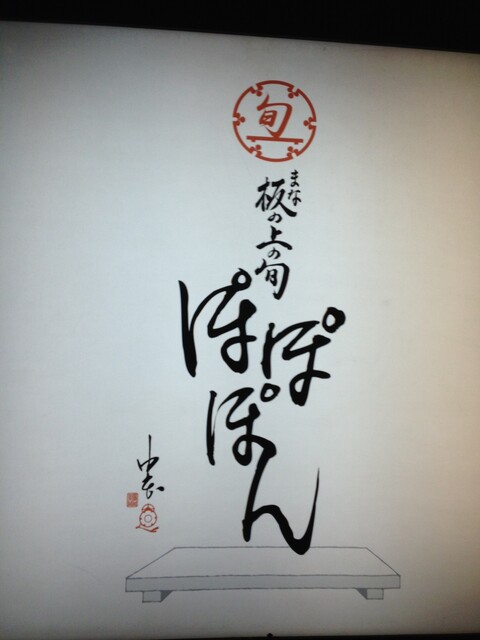 旬
まな
板の上の旬
ぽぽ
ぽん